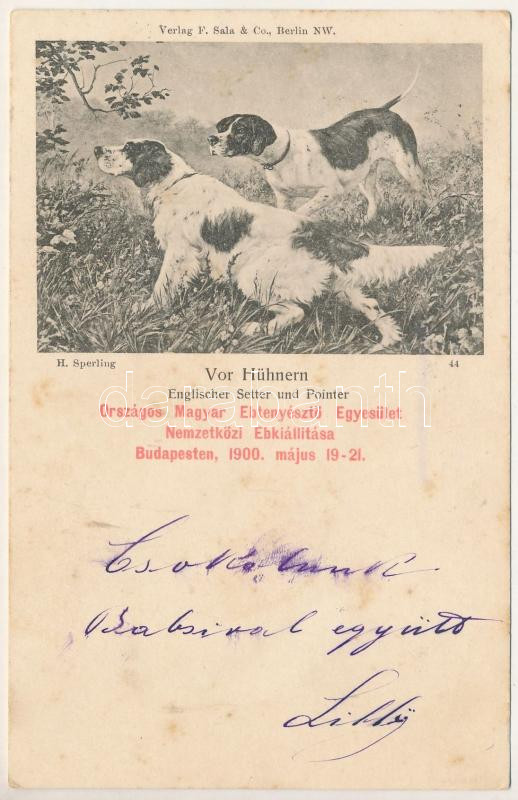 Verlag F. Sala & Co., Berlin NW.
H. Sperling 44
Vor Hühnern
Englischer Setter und Pointer
Országos Magyar Ebtenyésztő Egyesület
Nemzetközi Ebkiállitása
Budapesten, 1900. május 19-21.
darabanth
Csokolunk
Babsival együtt
Lilly